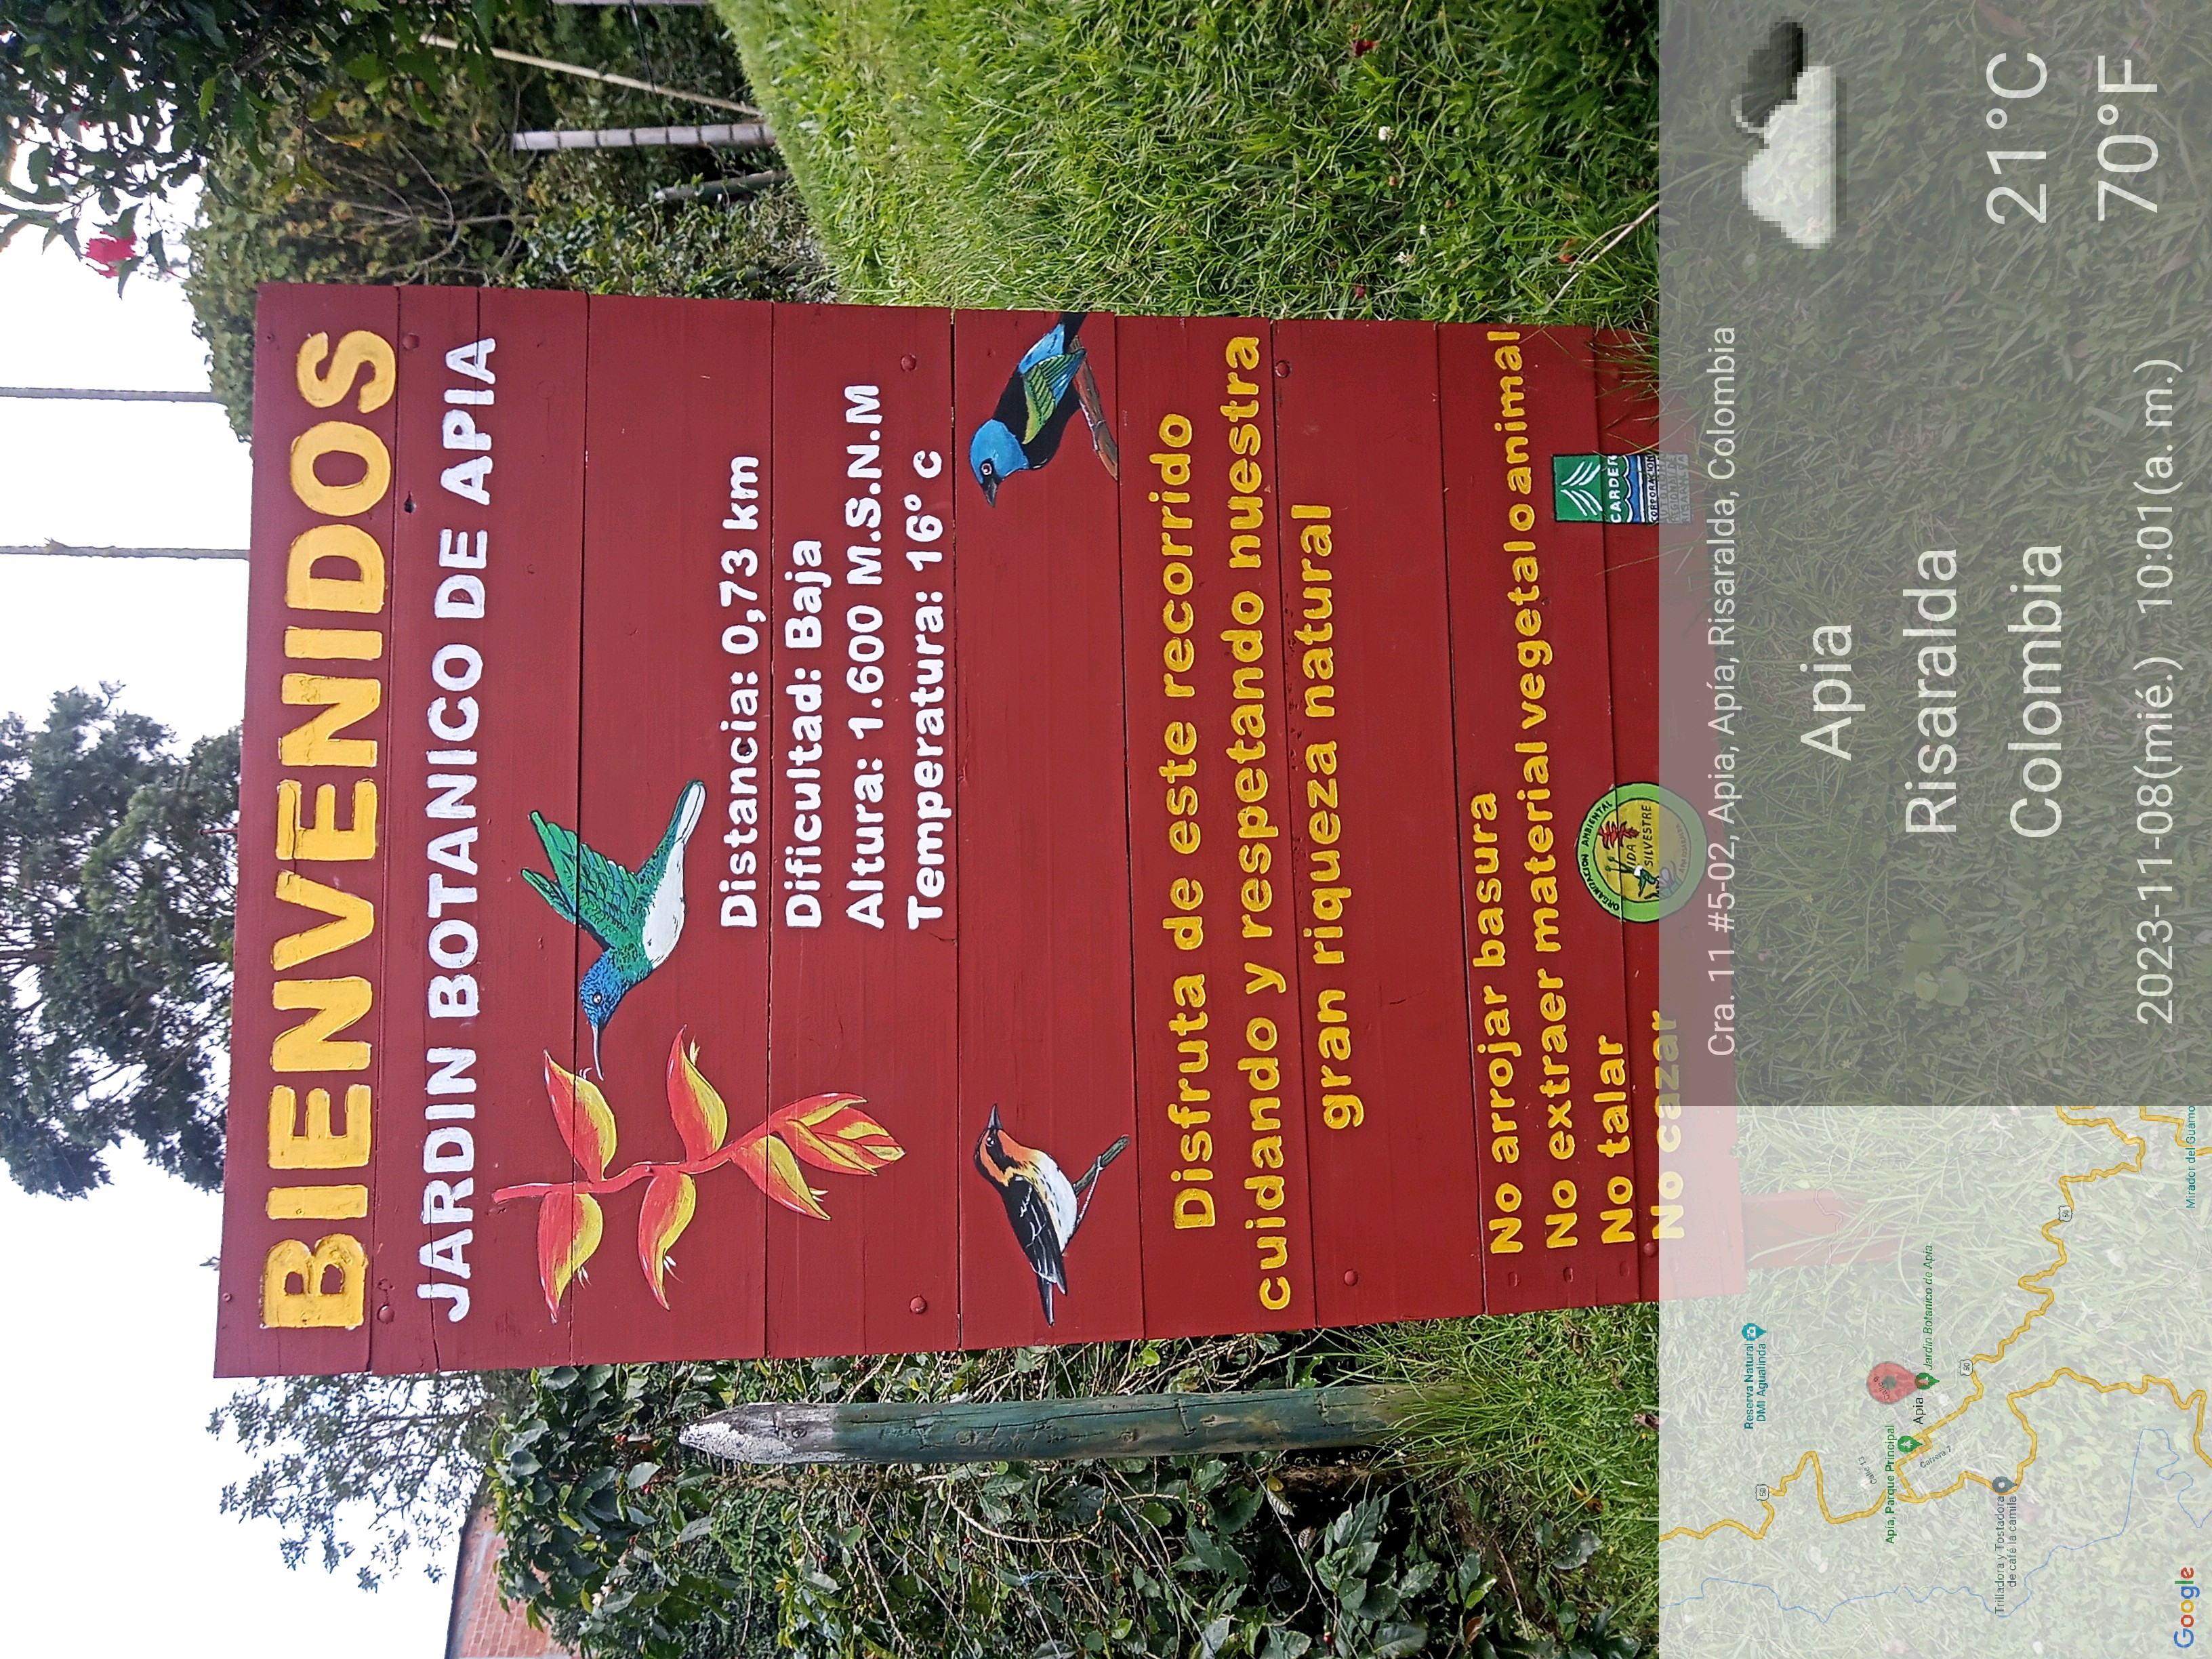 BIENVENIDOS
JARDIN BOTANICO DE APIA
Distancia: 0,73 km
Dificultad: Baja
Altura: 1.600 M.S.N.M
Temperatura: 16° c
Disfruta de este recorrido
cuidando y respetando nuestra
gran riqueza natural
No arrojar basura
No extraer material vegetal o animal
No talar
No cazar
ORGANIZACION AMBIENTAL
VIDA
SILVESTRE
CARDER
CORPORACION
AUTONOMA
REGIONAL DE
RISARALDA
Cra. 11 #5-02, Apia, Apía, Risaralda, Colombia
Apia
Risaralda
Colombia
21°C
70°F
2023-11-08(mié.) 10:01(a. m.)
Reserva Natural
DMI Agualinda
50
Calle 13
Apía, Parque Principal
Apia
Jardin Botanico de Apia
Carrera 7
50
Trilladora y Tostadora
de café la camila
50
Google
Mirador del Guamo